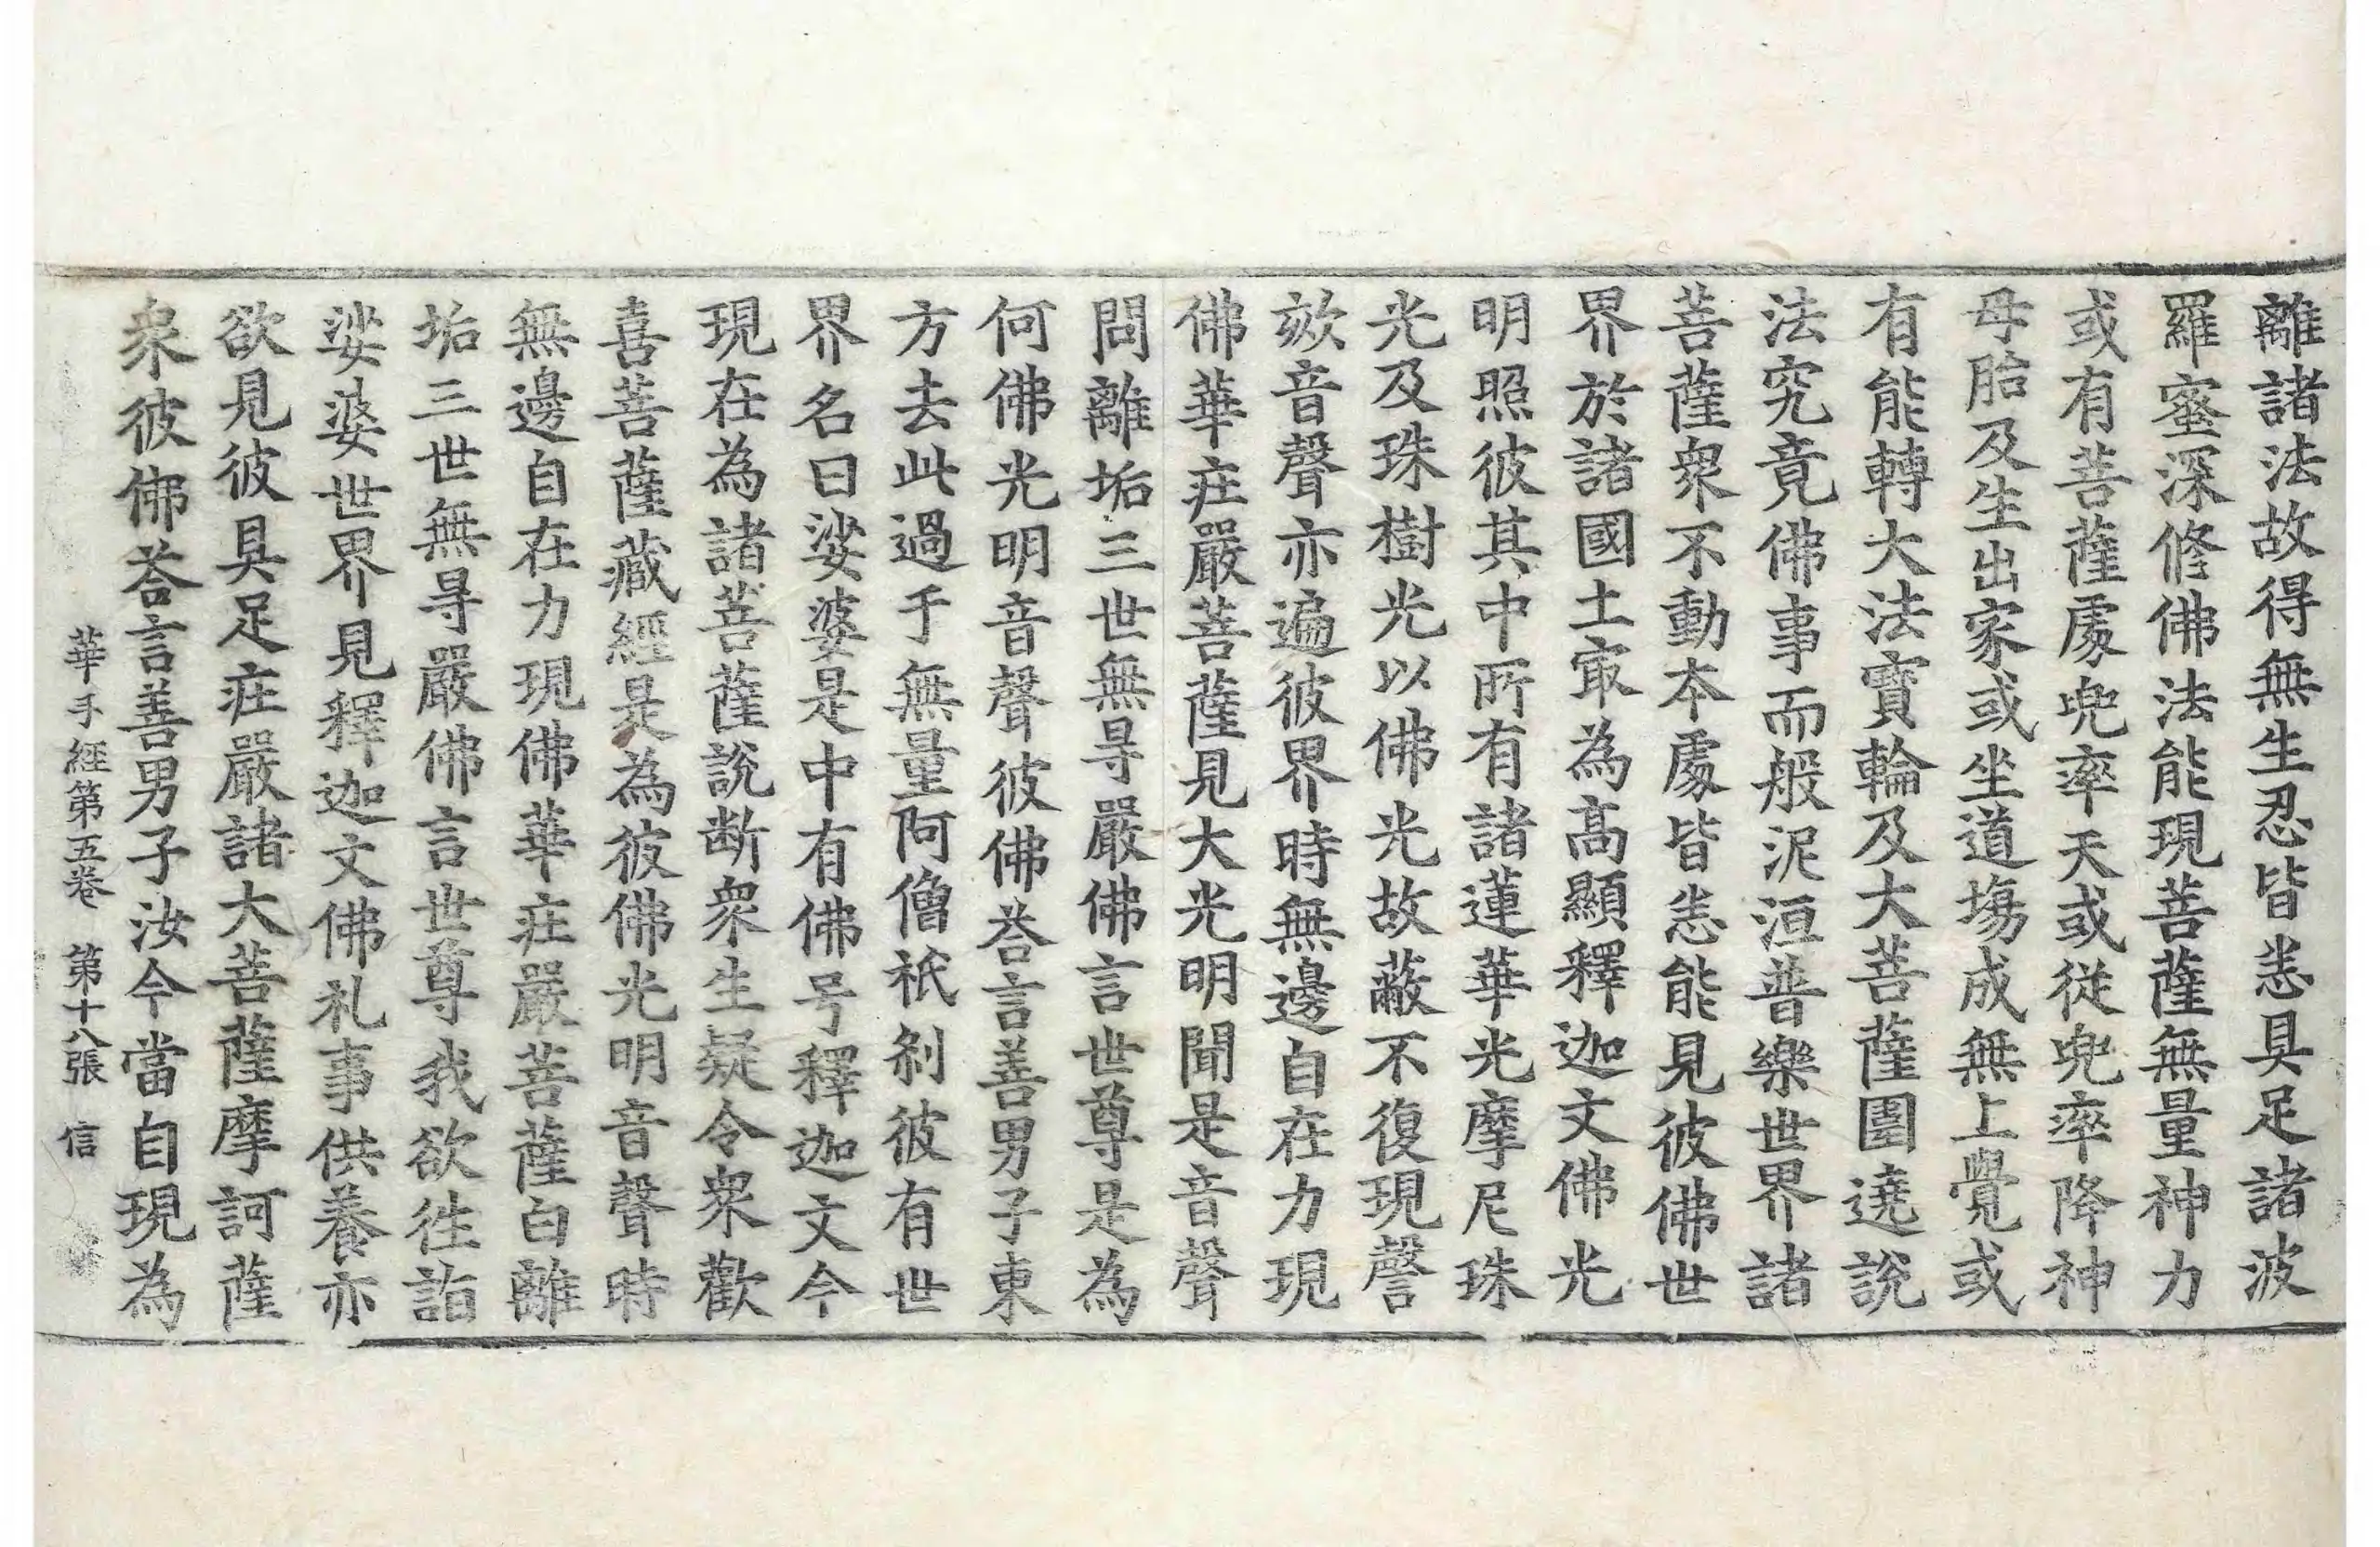 離諸法故得無生忍皆悉具足諸波
羅蜜深修佛法能現菩薩無量神力
或有菩薩處兜率天或從兜率降神
母胎及生出家或坐道塲成無上覺或
有能轉大法寶輪及大菩薩圍遶說
法究竟佛事而般泥洹普樂世界諸
菩薩衆不動本處皆悉能見彼佛世
界於諸國土㝡為髙顯釋迦文佛光
明照彼其中所有諸蓮華光摩尼珠
光及珠樹光以佛光故蔽不復現謦
欬音聲亦遍彼界時無邊自在力現
佛華莊嚴菩薩見大光明聞是音聲
問離垢三世無㝵嚴佛言世尊是為
何佛光明音聲彼佛荅言善男子東
方去此過于無量阿僧祇剎彼有世
界名曰娑婆是中有佛号釋迦文今
現在為諸菩薩說断衆生疑令衆歡
喜菩薩藏經是為彼佛光明音聲時
無邊自在力現佛華莊嚴菩薩白離
垢三世無㝵嚴佛言世尊我欲徃詣
娑婆世界見釋迦文佛礼事供養亦
欲見彼具足莊嚴諸大菩薩摩訶薩
衆彼佛荅言善男子汝今當自現為
華手經第五卷 第十八張 信